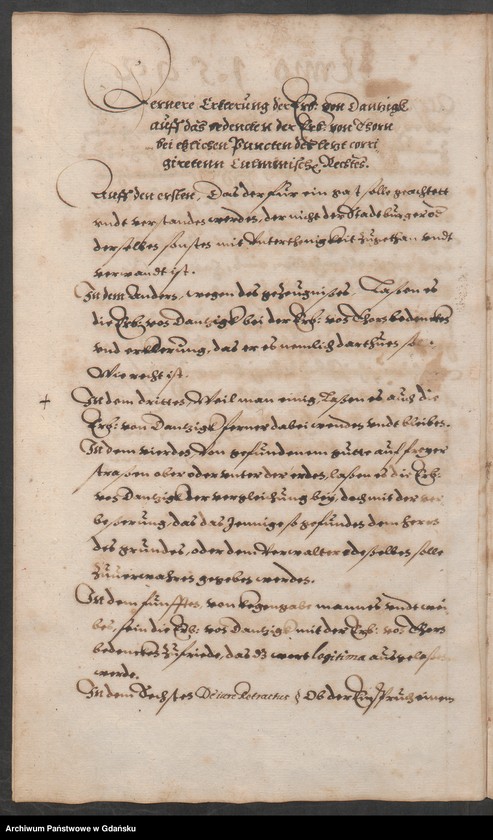 Fernere Erklerung der Erb: von Dantzigk
auff das bedencken der Erb: von Thorn
bei etzlichen Puncten des letzt corri
giretenn Culmmischen Rechtes.
Auff den ersten, Das der für ein gast solle geachtett
vndt verstanden werden, der nicht der Stadt burger oder
derselben sonsten mit Unterthenigkeit zugethan vndt
verwandt ist.
In dem Andern, wegen des gezeugnißes, Laßen es
die Erb: von Dantzigk bei der Erb: von Thorn bedencken
vnd erklerung, das er es nemlich darthuen soll.
Wie recht ist.
In dem dritten, Weil man einig, Laßen es auch die
Erb: von Dantzigk ferner dabei wenden vndt bleiben.
In dem vierden, Von gefundenem gutte auf freyer
straßen ober oder vnter der erden, laßen es die Erb:
von Dantzigk der vergleichung bey, doch mit der ver
beßerung, das das Jennige so gefunden dem herrn
des grundes, oder dem Verwalter deßelben solle
Zuuerwahren gegeben werden.
In dem fünfften, von kegengabe mannes vndt wei
bes, sein die Erb: von Dantzigk mit der Erb: von Thorn
bedencken zufriden, das dz wort legitima ausgelaßen
werde.
In dem Sechsten De iure Retractus, Ob der Einspruch einem
Archiwum Państwowe w Gdańsku